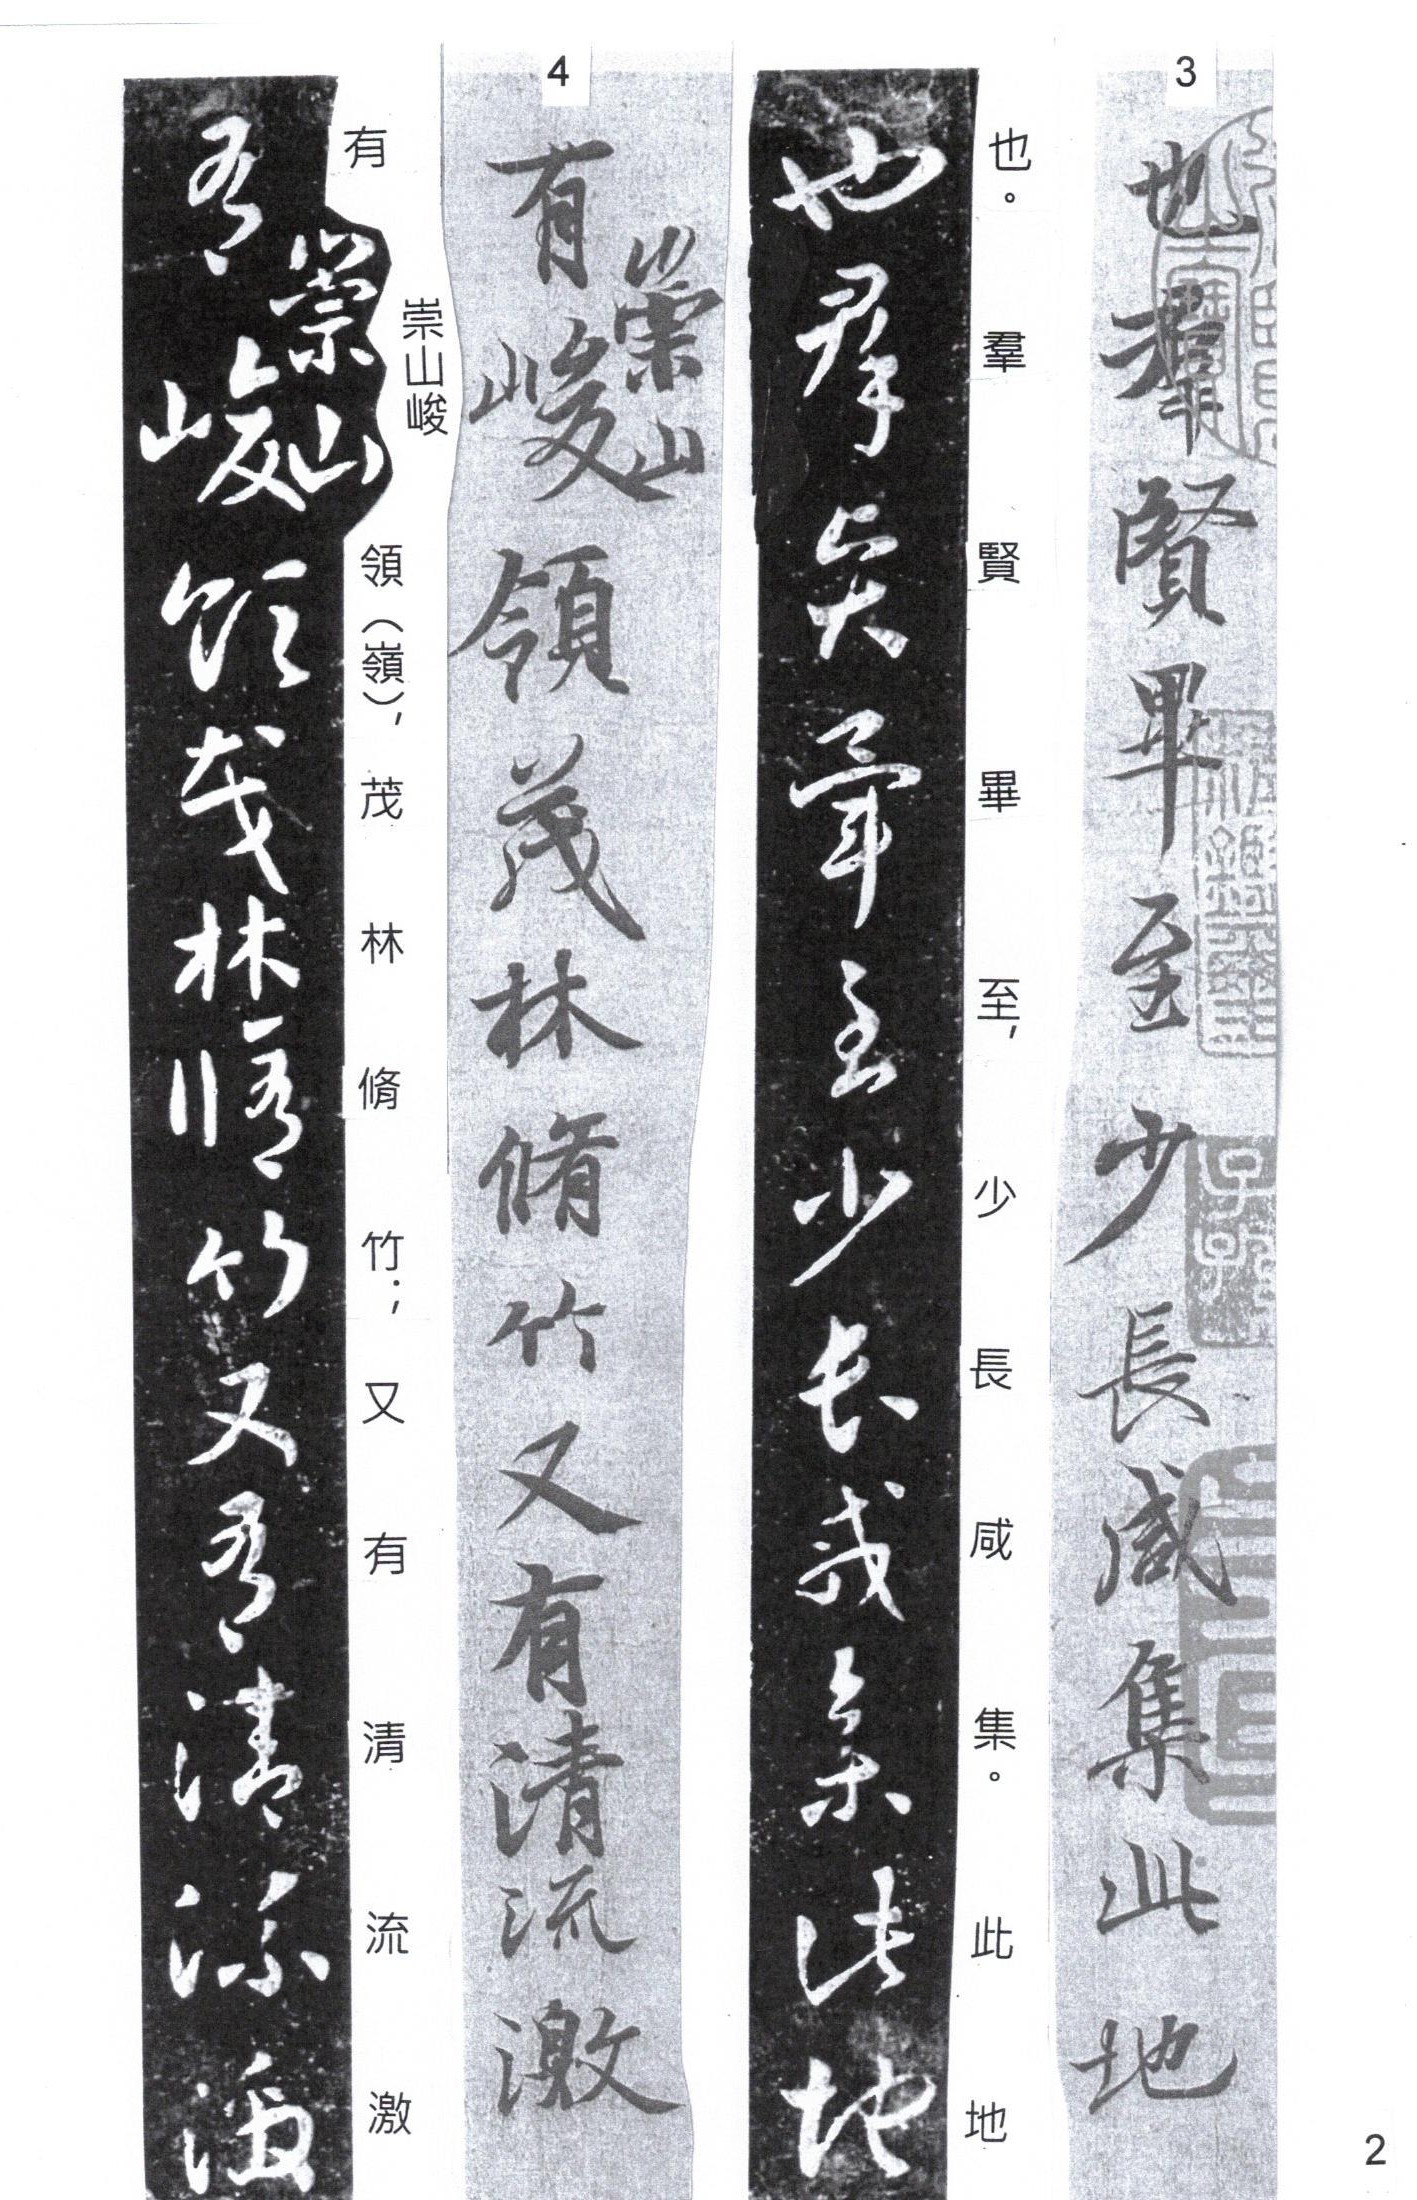 3
也羣賢畢至少長咸集此地
也。羣賢畢至，少長咸集。此地
也羣賢畢至少長咸集此地
4
有崇山峻領茂林脩竹又有清流激
有崇山峻領（嶺），茂林脩竹；又有清流激
有崇山峻領茂林脩竹又有清流激
2